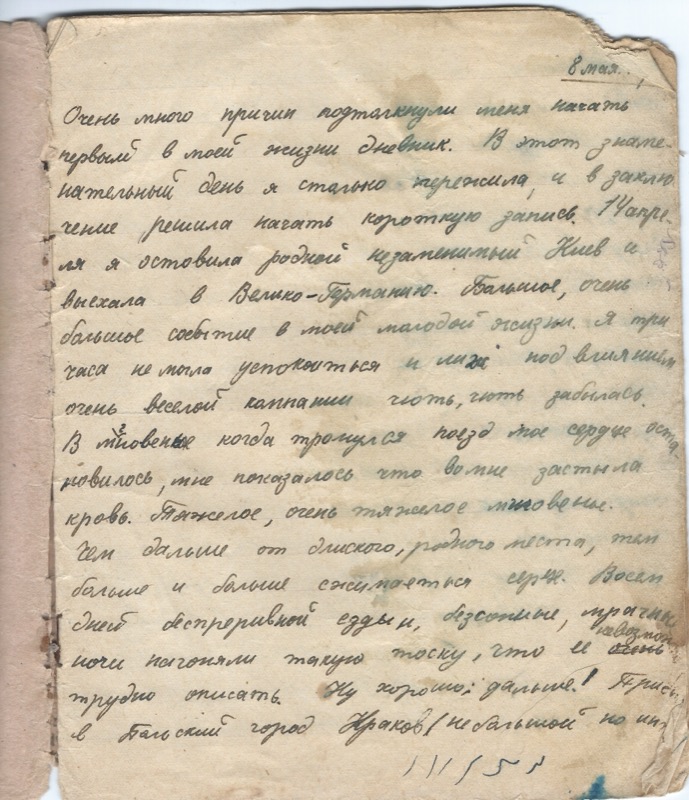 8 мая.
Очень много причин подтолкнули меня начать
первый в моей жизни дневник. В этот знаме-
нательный день я столько пережила, и в заклю
чение решила начать короткую запись. 14 апре-
ля я оставила родной незаменимый Киев и
выехала в Велико-Германию. Большое, очень
большое событие в моей молодой жизни. Я три
часа не могла успокоиться и лиж под влиянием
очень веселой кампании чють, чють забылась.
В мгновенье когда тронулся поезд мое сердце оста-
новилось, мне показалось что во мне застыла
кровь. Тяжелое, очень тяжелое мгновенье.
Чем дальше от блиского, родного места, тем
больше и больше сжимаеться серце. Восем
дней беспреривной езды, безсонные, мрачные
ночи нагоняли такую тоску, что ее невозмож
очень
трудно описать. Ну хорошо; дальше!
в Польский город Краков (небольшой но ин-